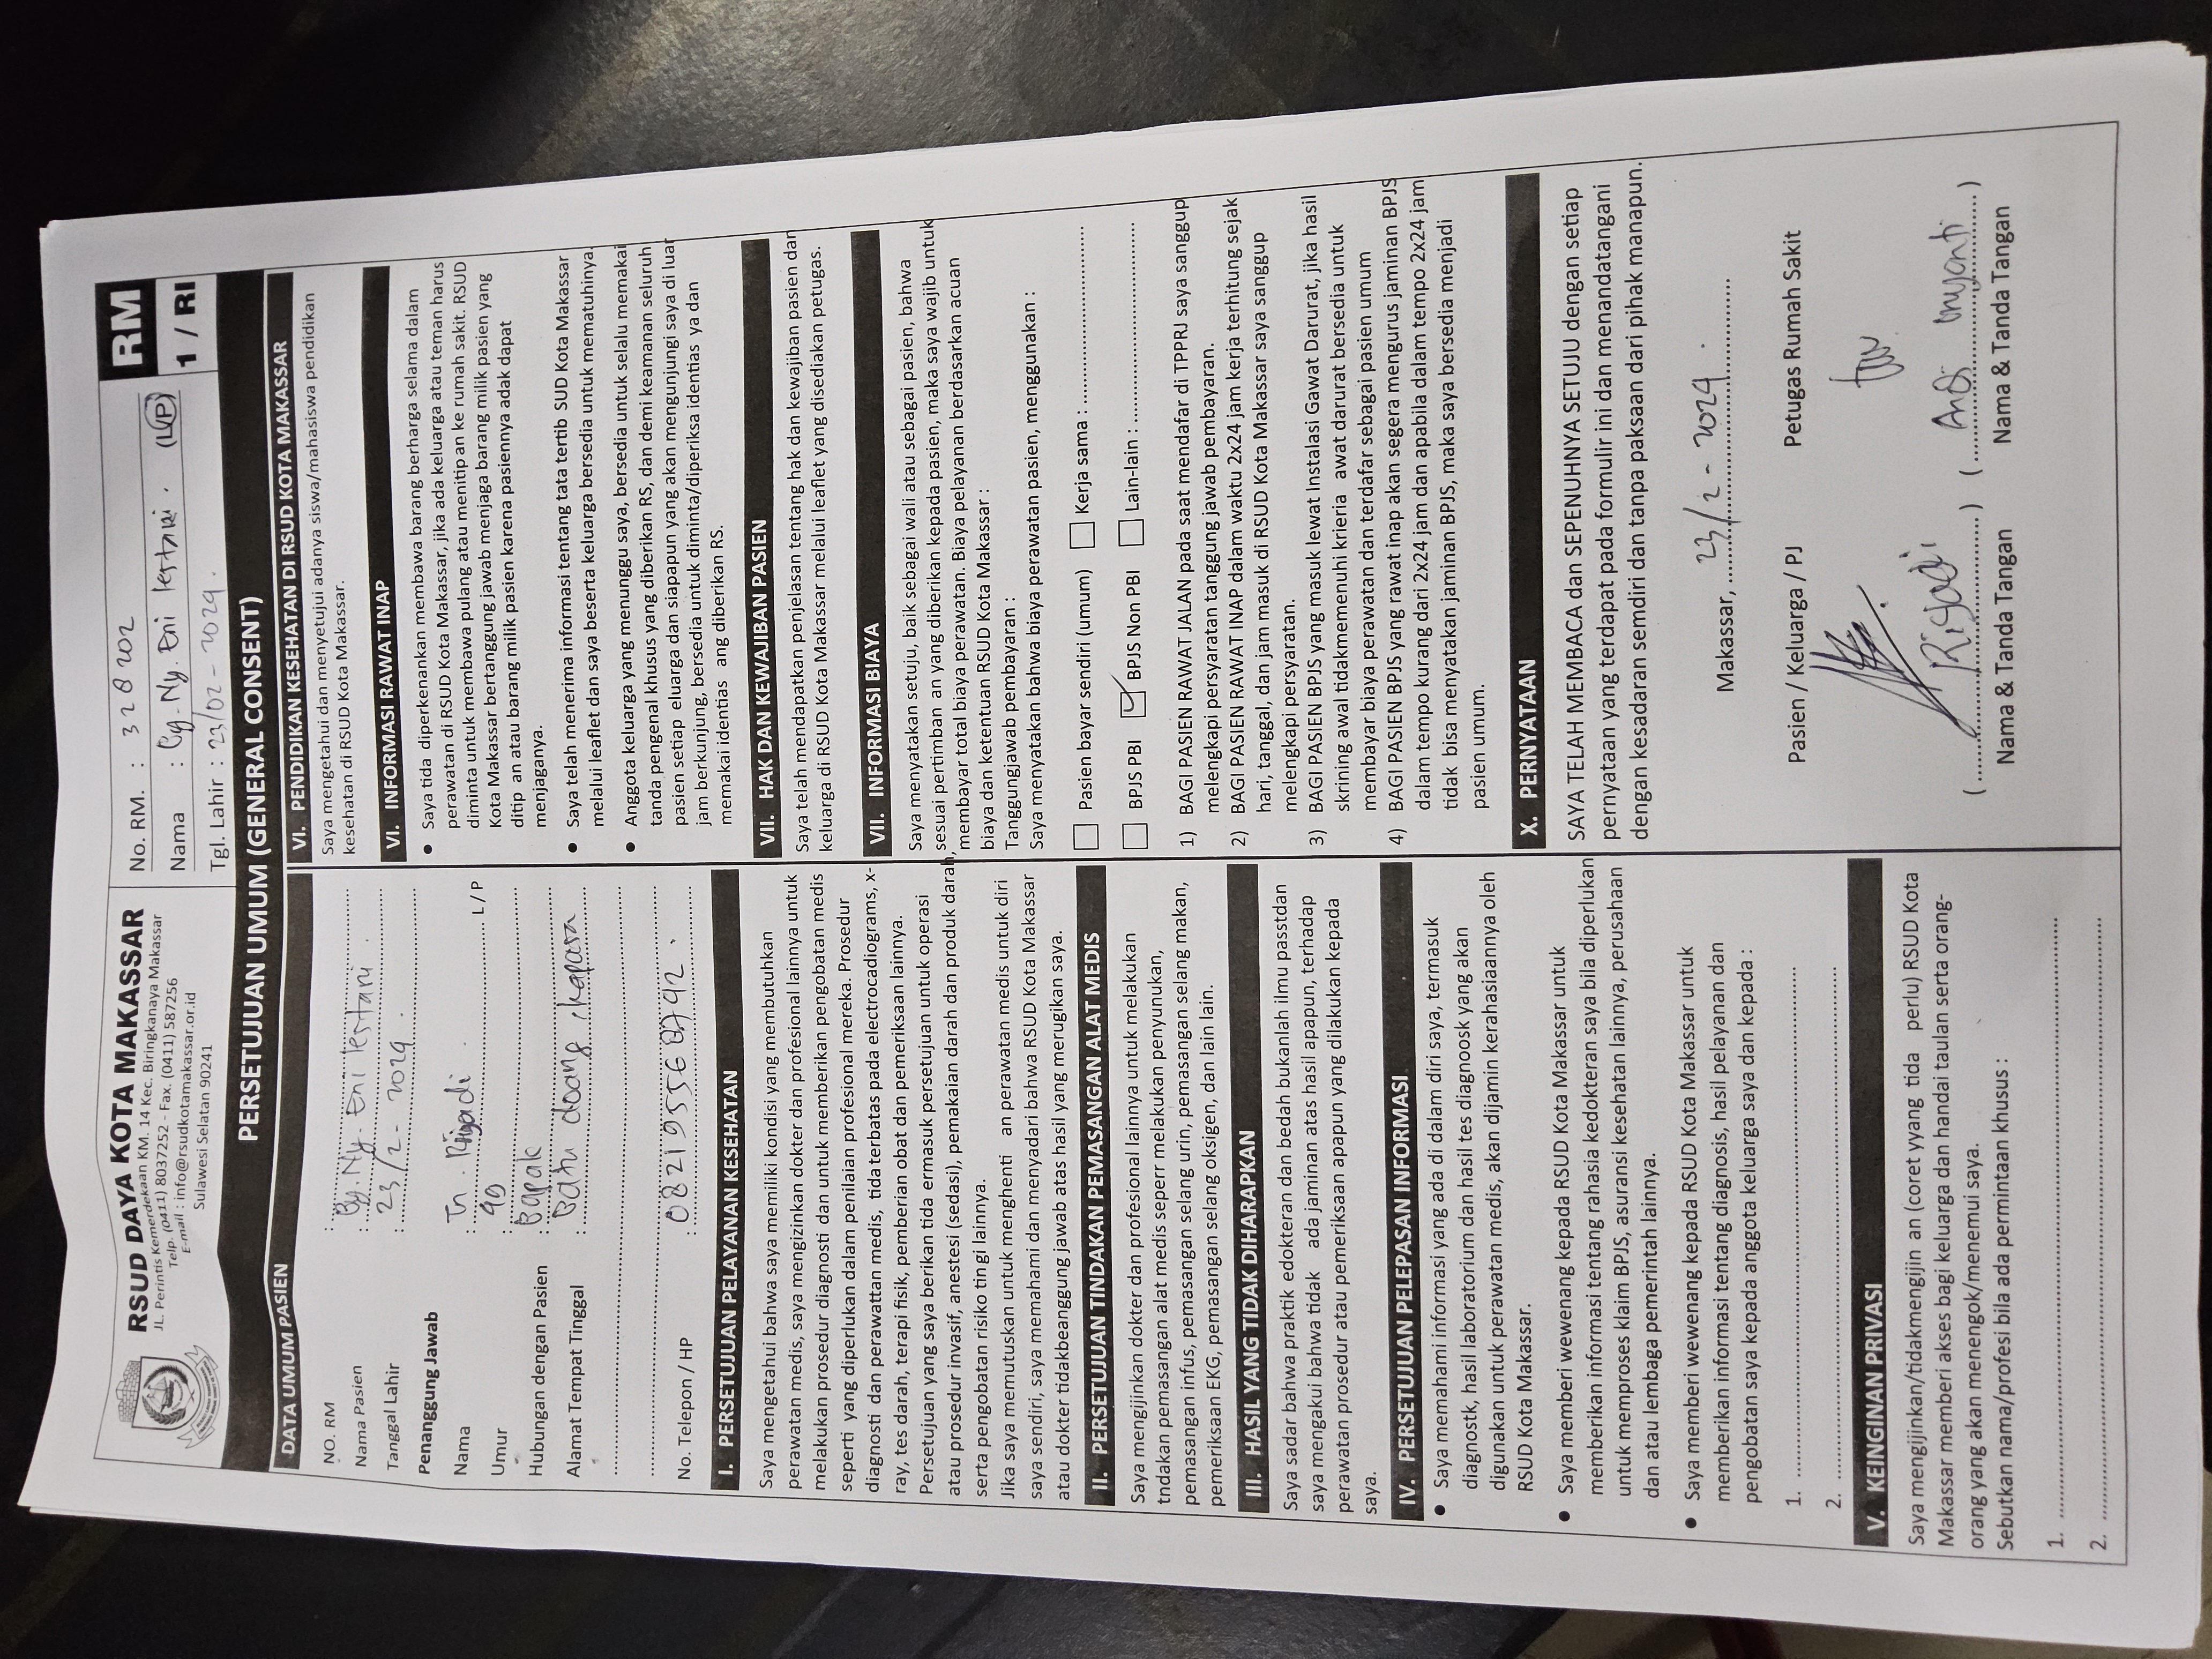 RSUD DAYA KOTA MAKASSAR
JL. Perintis Kemerdekaan KM. 14 Kec. Biringkanaya Makassar
Telp. (0411) 8037252 - Fax. (0411) 587256
E-mail : info@rsudkotamakassar.or.id
Sulawesi Selatan 90241
No. RM. : 328202
Nama : By. Ny. Eni lestari. (L/P)
Tgl. Lahir : 23/02 - 2024.
RM
1 / RI
PERSETUJUAN UMUM (GENERAL CONSENT)
DATA UMUM PASIEN
NO. RM :
Nama Pasien : By. Ny. Eni lestari.
Tanggal Lahir : 23/2 - 2024.
Penanggung Jawab
Nama : Tn. L / P
Umur :
Hubungan dengan Pasien : Bapak
Alamat Tempat Tinggal : Batu doang, kapasa
No. Telepon / HP : 082195568792.
I. PERSETUJUAN PELAYANAN KESEHATAN
Saya mengetahui bahwa saya memiliki kondisi yang membutuhkan
perawatan medis, saya mengizinkan dokter dan profesional lainnya untuk
melakukan prosedur diagnosti dan untuk memberikan pengobatan medis
seperti yang diperlukan dalam penilaian profesional mereka. Prosedur
diagnosti dan perawattan medis, tida terbatas pada electrocadiograms, x-
ray, tes darah, terapi fisik, pemberian obat dan pemeriksaan lainnya.
Persetujuan yang saya berikan tida ermasuk persetujuan untuk operasi
atau prosedur invasif, anestesi (sedasi), pemakaian darah dan produk darah,
serta pengobatan risiko tin gi lainnya.
Jika saya memutuskan untuk menghenti an perawatan medis untuk diri
saya sendiri, saya memahami dan menyadari bahwa RSUD Kota Makassar
atau dokter tidakbeanggung jawab atas hasil yang merugikan saya.
II. PERSETUJUAN TINDAKAN PEMASANGAN ALAT MEDIS
Saya mengijinkan dokter dan profesional lainnya untuk melakukan
tndakan pemasangan alat medis seperr melakukan penyunukan,
pemasangan infus, pemasangan selang urin, pemasangan selang makan,
pemeriksaan EKG, pemasangan selang oksigen, dan lain lain.
III. HASIL YANG TIDAK DIHARAPKAN
Saya sadar bahwa praktik edokteran dan bedah bukanlah ilmu passtdan
saya mengakui bahwa tidak ada jaminan atas hasil apapun, terhadap
perawatan prosedur atau pemeriksaan apapun yang dilakukan kepada
saya.
IV. PERSETUJUAN PELEPASAN INFORMASI
● Saya memahami informasi yang ada di dalam diri saya, termasuk
diagnostk, hasil laboratorium dan hasil tes diagnoosk yang akan
digunakan untuk perawatan medis, akan dijamin kerahasiaannya oleh
RSUD Kota Makassar.
● Saya memberi wewenang kepada RSUD Kota Makassar untuk
memberikan informasi tentang rahasia kedokteran saya bila diperlukan
untuk memproses klaim BPJS, asuransi kesehatan lainnya, perusahaan
dan atau lembaga pemerintah lainnya.
● Saya memberi wewenang kepada RSUD Kota Makassar untuk
memberikan informasi tentang diagnosis, hasil pelayanan dan
pengobatan saya kepada anggota keluarga saya dan kepada :
1.
2.
V. KEINGINAN PRIVASI
Saya mengijinkan/tidakmengijin an (coret yyang tida perlu) RSUD Kota
Makassar memberi akses bagi keluarga dan handai taulan serta orang-
orang yang akan menengok/menemui saya.
Sebutkan nama/profesi bila ada permintaan khusus :
1.
2.
VI. PENDIDIKAN KESEHATAN DI RSUD KOTA MAKASSAR
Saya mengetahui dan menyetujui adanya siswa/mahasiswa pendidikan
kesehatan di RSUD Kota Makassar.
VI. INFORMASI RAWAT INAP
● Saya tida diperkenankan membawa barang berharga selama dalam
perawatan di RSUD Kota Makassar, jika ada keluarga atau teman harus
diminta untuk membawa pulang atau menitip an ke rumah sakit. RSUD
Kota Makassar bertanggung jawab menjaga barang milik pasien yang
ditip an atau barang milik pasien karena pasiennya adak dapat
menjaganya.
● Saya telah menerima informasi tentang tata tertib SUD Kota Makassar
melalui leaflet dan saya beserta keluarga bersedia untuk mematuhinya.
● Anggota keluarga yang menunggu saya, bersedia untuk selalu memakai
tanda pengenal khusus yang diberikan RS, dan demi keamanan seluruh
pasien setiap eluarga dan siapapun yang akan mengunjungi saya di luar
jam berkunjung, bersedia untuk diminta/diperiksa identias ya dan
memakai identias ang diberikan RS.
VII. HAK DAN KEWAJIBAN PASIEN
Saya telah mendapatkan penjelasan tentang hak dan kewajiban pasien dan
keluarga di RSUD Kota Makassar melalui leaflet yang disediakan petugas.
VII. INFORMASI BIAYA
Saya menyatakan setuju, baik sebagai wali atau sebagai pasien, bahwa
sesuai pertimban an yang diberikan kepada pasien, maka saya wajib untuk
membayar total biaya perawatan. Biaya pelayanan berdasarkan acuan
biaya dan ketentuan RSUD Kota Makassar :
Tanggungjawab pembayaran :
Saya menyatakan bahwa biaya perawatan pasien, menggunakan :
☐ Pasien bayar sendiri (umum) ☐ Kerja sama :
☐ BPJS PBI ☑ BPJS Non PBI ☐ Lain-lain :
1) BAGI PASIEN RAWAT JALAN pada saat mendafar di TPPRJ saya sanggup
melengkapi persyaratan tanggung jawab pembayaran.
2) BAGI PASIEN RAWAT INAP dalam waktu 2x24 jam kerja terhitung sejak
hari, tanggal, dan jam masuk di RSUD Kota Makassar saya sanggup
melengkapi persyaratan.
3) BAGI PASIEN BPJS yang masuk lewat Instalasi Gawat Darurat, jika hasil
skrining awal tidakmemenuhi krieria awat darurat bersedia untuk
membayar biaya perawatan dan terdafar sebagai pasien umum
4) BAGI PASIEN BPJS yang rawat inap akan segera mengurus jaminan BPJS
dalam tempo kurang dari 2x24 jam dan apabila dalam tempo 2x24 jam
tidak bisa menyatakan jaminan BPJS, maka saya bersedia menjadi
pasien umum.
X. PERNYATAAN
SAYA TELAH MEMBACA dan SEPENUHNYA SETUJU dengan setiap
pernyataan yang terdapat pada formulir ini dan menandatangani
dengan kesadaran semdiri dan tanpa paksaan dari pihak manapun.
Makassar, 23/2 - 2024.
Pasien / Keluarga / PJ Petugas Rumah Sakit
( ) ( Andi )
Nama & Tanda Tangan Nama & Tanda Tangan